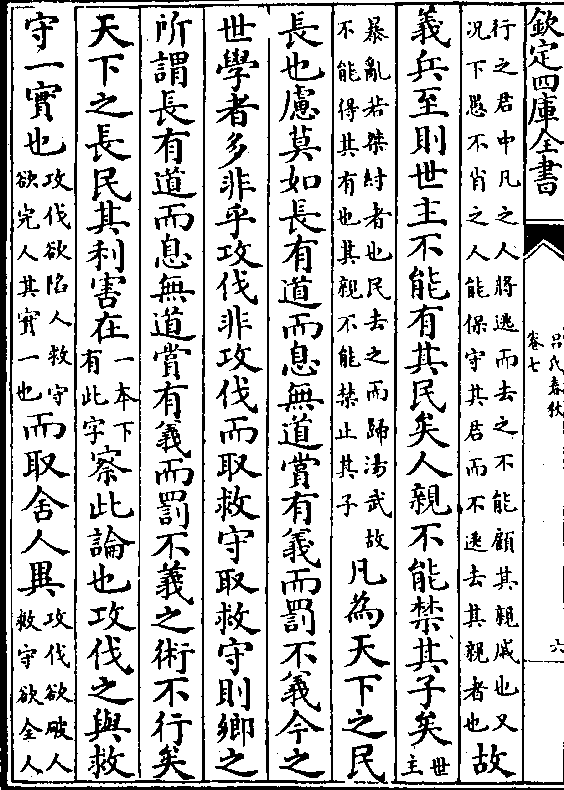 欽定四庫全書
呂氏春秋
卷七
六
行之君中凡之人將逃而去之不能顧其親戚也又
况下愚不肖之人能保守其君而不逃去其親者也
故
義兵至則世主不能有其民矣人親不能禁其子矣
世
主
暴亂若桀紂者也民去之而歸湯武故
不能得其有也其親不能禁止其子
凡為天下之民
長也慮莫如長有道而息無道賞有義而罰不義今之
世學者多非乎攻伐非攻伐而取救守取救守則鄉之
所謂長有道而息無道賞有義而罰不義之術不行矣
天下之長民其利害在
一本下
有此字
察此論也攻伐之與救
守一實也
攻伐欲陷人救守
欲完人其實一也
而取舍人異
攻伐欲破人
救守欲全人